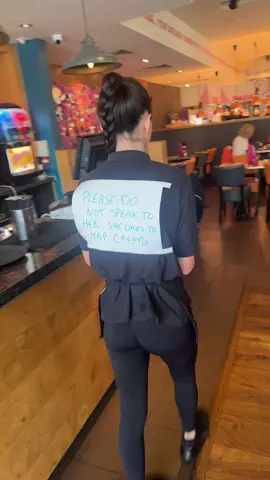 PLEASE DO
NOT SPEAK TO
HER. SHE LIKES TO
YAP